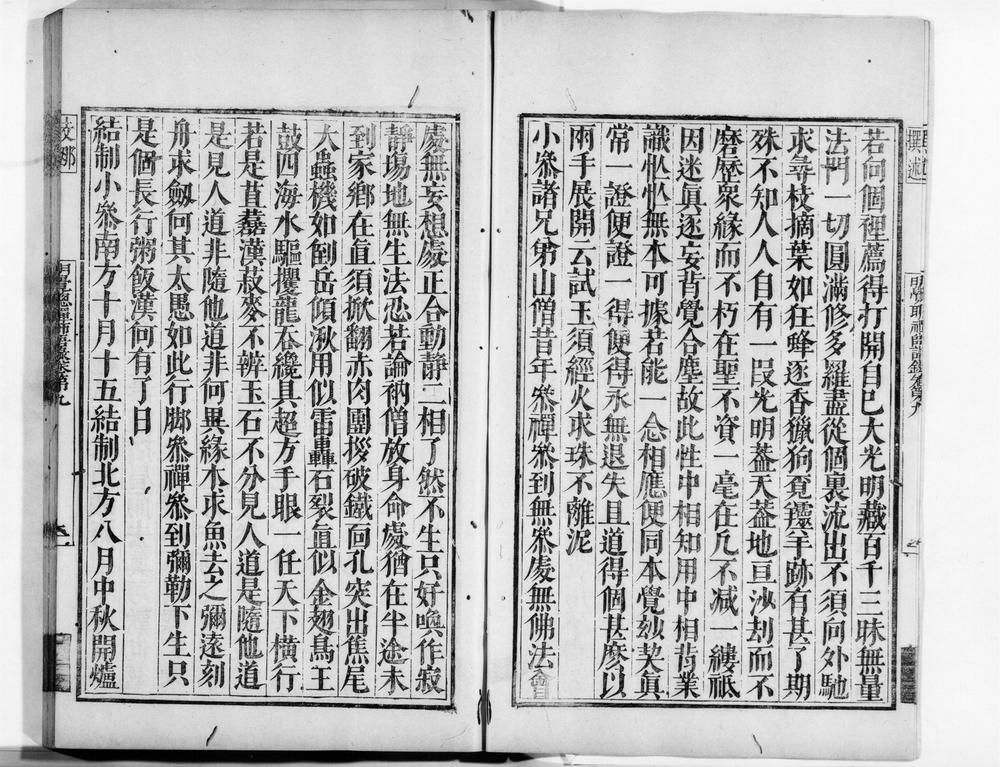 若向個裡薦得打開自己大光明藏百千三昧無量
法門一切圓滿修多羅盡從個裏流出不須向外馳
求尋枝摘葉如狂蜂逐香獵狗覓𦏰羊跡有甚了期
殊不知人人自有一段光明葢天葢地亘沙劫而不
磨歷衆緣而不朽在聖不資一毫在凡不減一縷祇
因迷眞逐妄背覺合塵故此性中相知用中相背業
識忙忙無本可據若能一念相應便同本覺玅契眞
常一證便證一得便得永無退失且道得個甚麼以
兩手展開云試玉須經火求珠不離泥
小叅諸兄弟山僧昔年叅禪叅到無叅處無佛法會
處無妄想處正合動靜二相了然不生只好喚作寂
靜塲地無生法忍若論衲僧放身命處猶在半途未
到家鄉在直須掀翻赤肉團拶破鐵面孔突出焦尾
大蟲機如倒岳傾湫用似雷轟石裂直似金翅鳥王
鼓四海水驅攫龍吞纔具超方手眼一任天下橫行
若是苴蕞漢菽麥不辨玉石不分見人道是隨他道
是見人道非隨他道非何異緣木求魚去之彌遠刻
舟求劒何其太愚如此行脚叅禪叅到彌勒下生只
是個長行粥飯漢何有了日
結制小叅南方十月十五結制北方八月中秋開爐